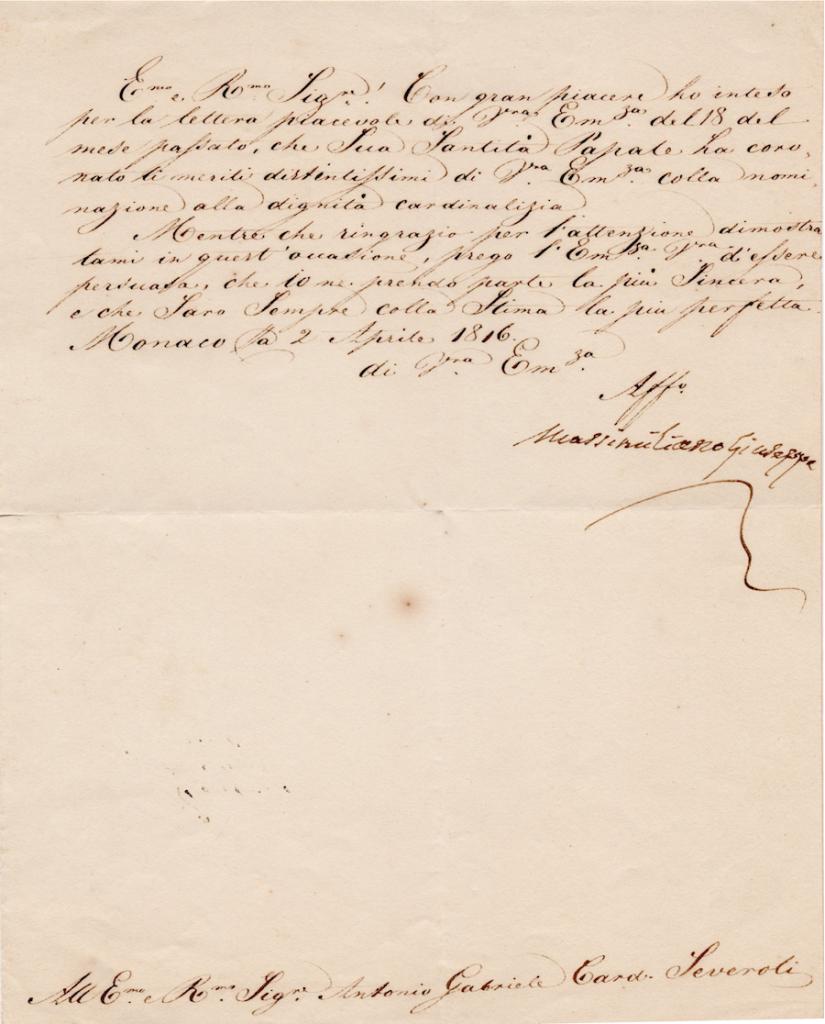 Em.mo e Rmo Sigr.! Con gran piacere ho inteso
per la lettera piacevole di Vra Em.za del 18 del
mese passato, che Sua Santità Papale ha coro,
nato li meriti distintissimi di Vra Em.za colla nomi,
nazione alla dignità cardinalizia
Mentre che ringrazio per l'attenzione dimostra
tami in quest'occasione, prego l'Em.za Vra d'essere
persuasa, che io ne prendo parte la più Sincera,
e che Saro Sempre colla Stima la piu perfetta.
Monaco li 2 Aprile 1816.
di Vra Em.za
Affo.
Massimiliano Giuseppe
All Em.mo e Rmo Sigr. Antonio Gabriele Card. Severoli